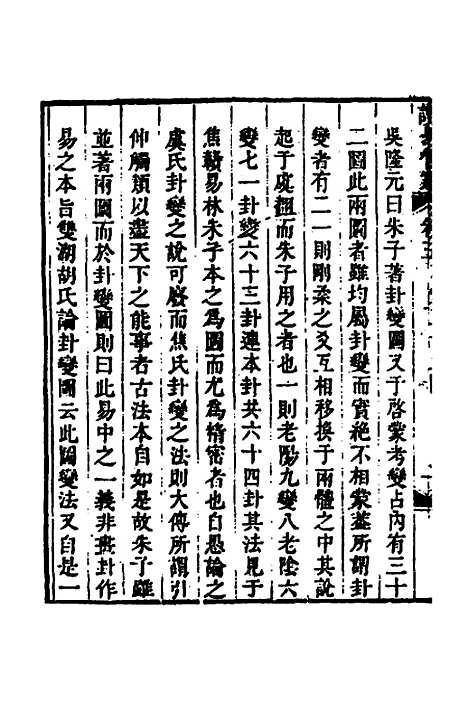 吳隆元曰朱子著卦變圖又于啓蒙考變占內有三十
二圖此兩圖者雖均屬卦變而實絶不相蒙葢所謂卦
變者有二一則剛柔之爻互相移換于兩體之中其說
起于虞翻而朱子用之者也一則老陽九變八老陰六
變七一卦變六十三卦連本卦共六十四卦其法見于
焦贛易林朱子本之爲圖而尤爲精密者也自愚論之
虞氏卦變之說可廢而焦氏卦變之法則大傳所謂引
伸觸類以盡天下之能事者古法本自如是故朱子雖
並著兩圖而於卦變圖則曰此易中之一義非畫卦作
易之本旨雙湖胡氏論卦變圖云此圖變法又自是一